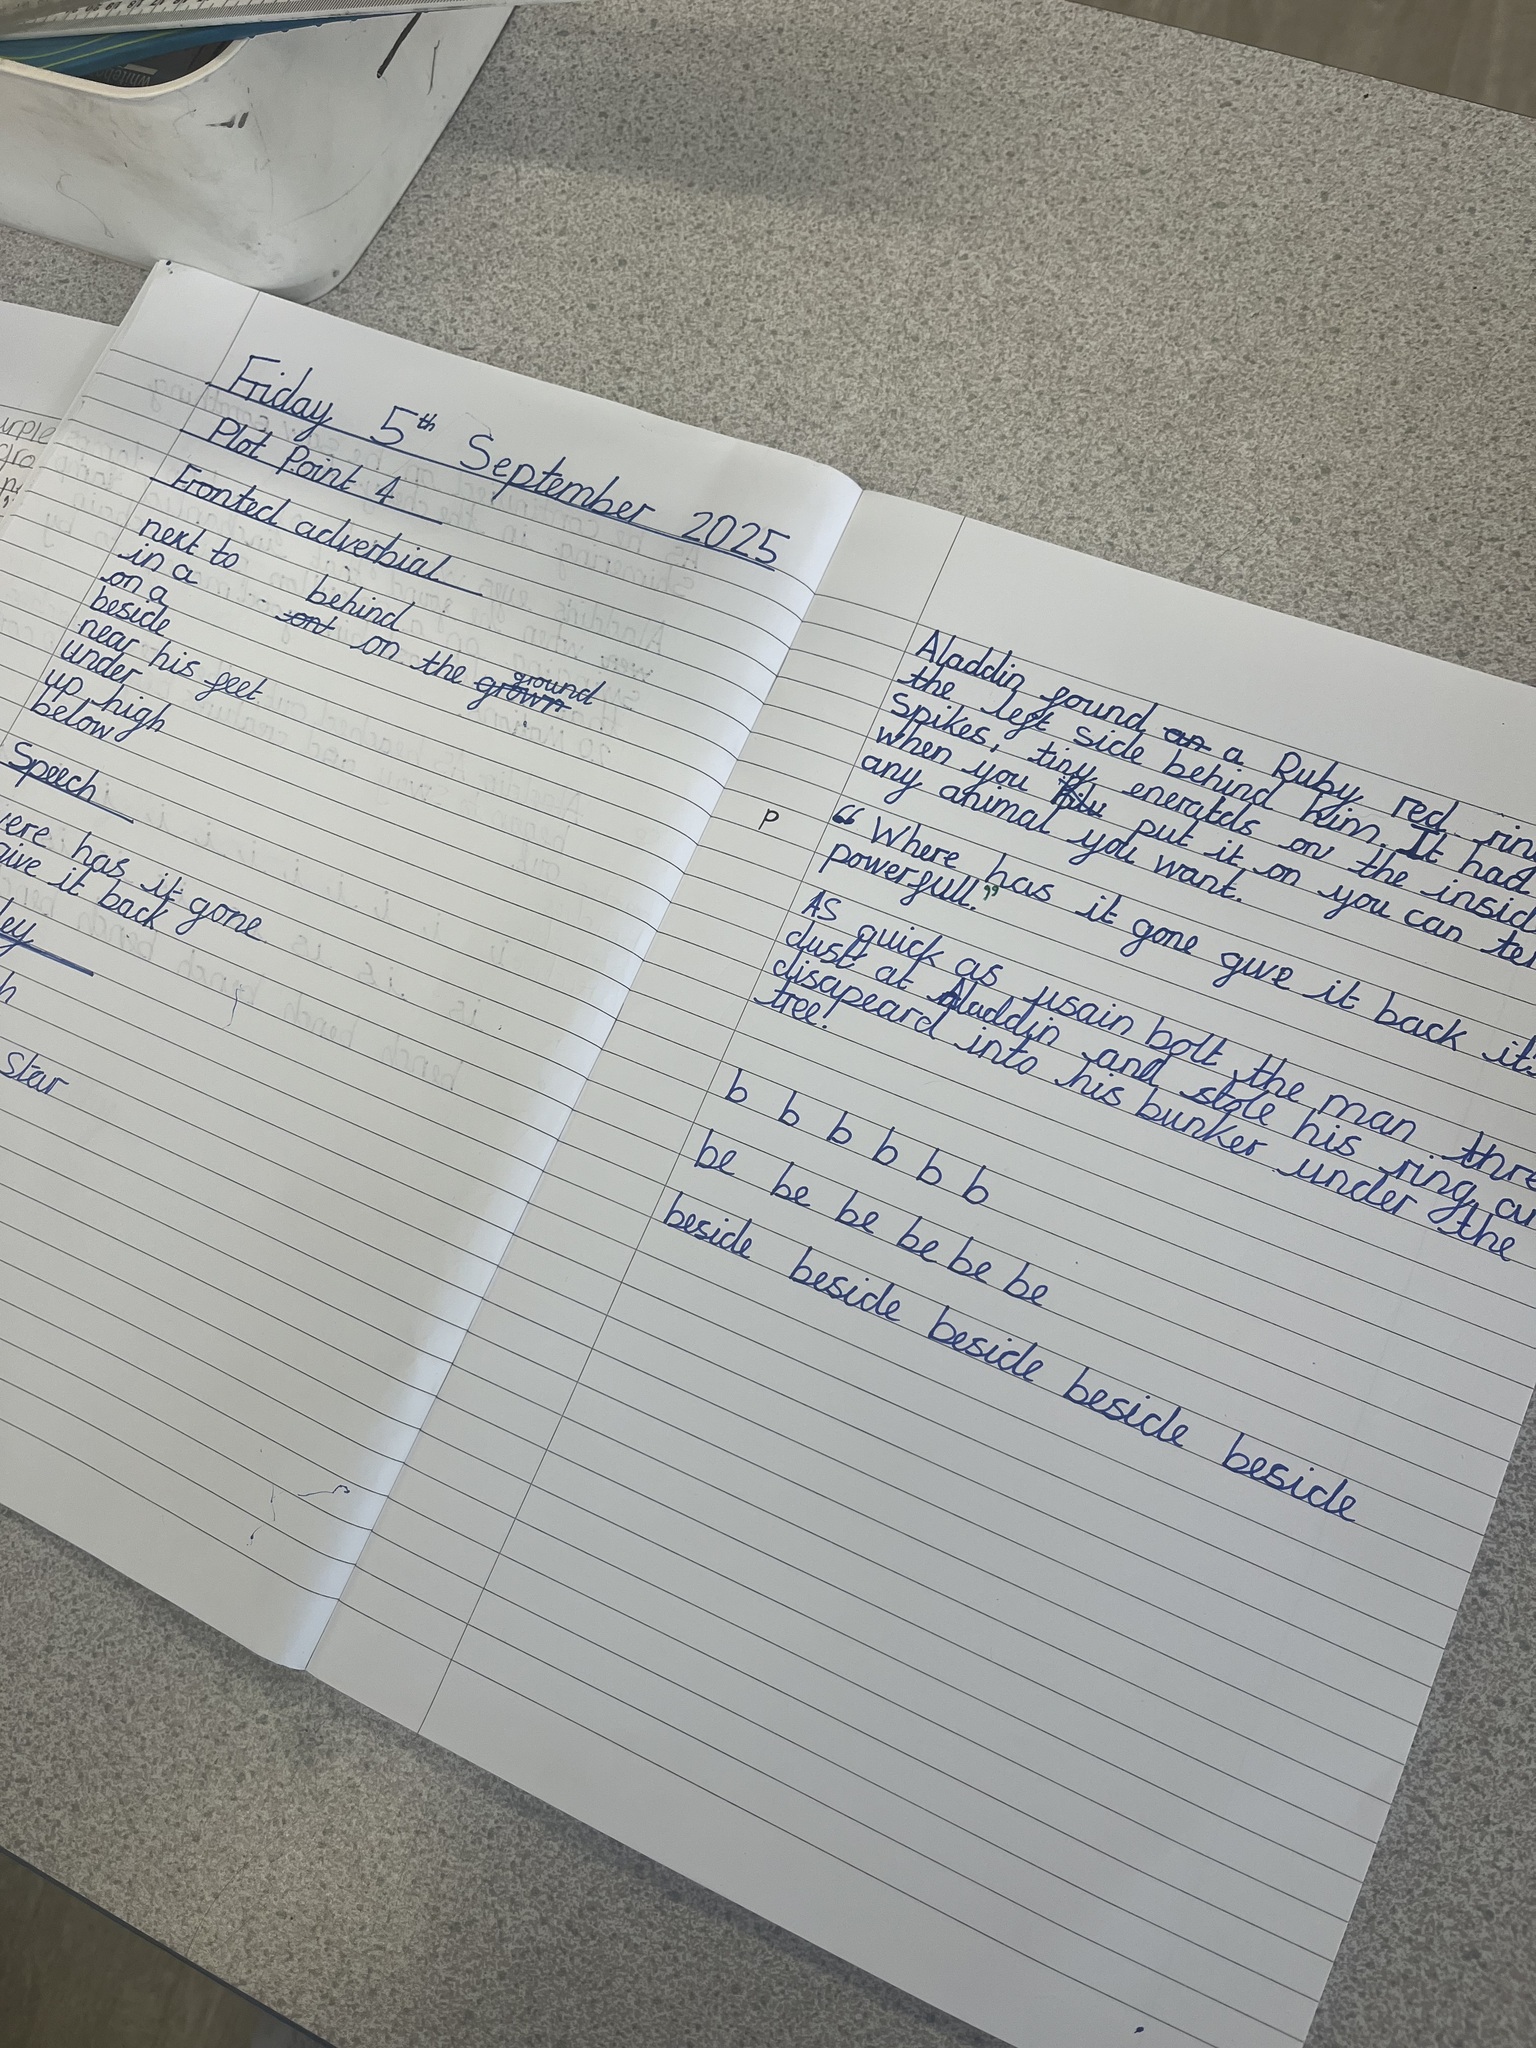 Friday 5th September 2025
Plot Point 4
Fronted adverbial
next to behind
in a
on a ont on the grown ground
beside
near his feet
under
up high
below
Speech
ere has it gone
give it back
ley
h
star
Aladdin found an a Ruby red ring
the left side behind him. It had
Spikes, tiny eneralds on the insid
when you put it on you can te
any animal you want.
P
"Where has it gone give it back it
powerfull."
AS quick as usain bolt the man thre
dust at Aladdin and stole his ring, au
disapeard into his bunker under the
tree!
b b b b b b
be be be be be be
beside beside beside beside beside